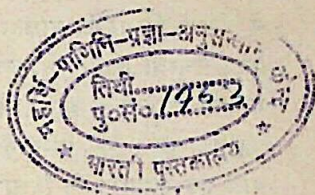 महर्षि-पाणिनि-प्रज्ञा-अनुसन्धान केन्द्र
तिथी............
पु०सं०.1963
* भारती पुस्तकालय *